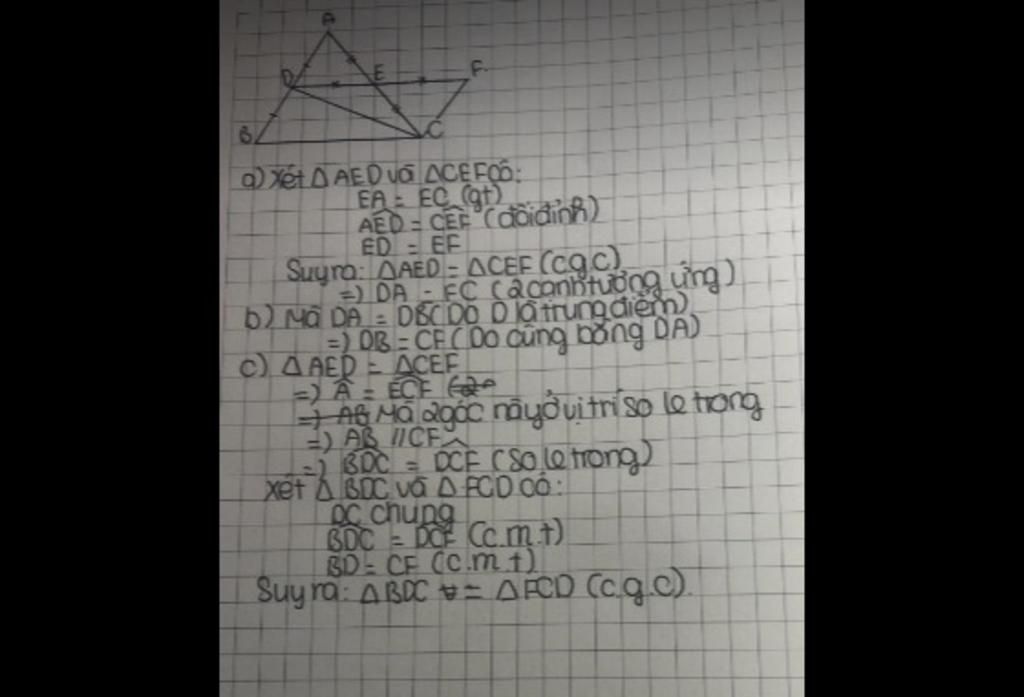 A
D
E
F
B
C
a) Xét ΔAED và ΔCEF có:
EA = EC (gt)
AED = CEF (đối đỉnh)
ED = EF
Suy ra: ΔAED = ΔCEF (c.g.c)
=) DA = FC (2 cạnh tương ứng)
b) Mà DA = DB (Do D là trung điểm)
=) DB = CF (Do cùng bằng DA)
c) ΔAED = ΔCEF
=) Â = ECF
=) AB Mà 2 góc này ở vị trí so le trong
=) AB // CF
=) BDC = DCF (so le trong)
Xét ΔBDC và ΔFCD có:
DC chung
BDC = DCF (c.m.t)
BD = CF (c.m.t)
Suy ra: ΔBDC = ΔFCD (c.g.c).